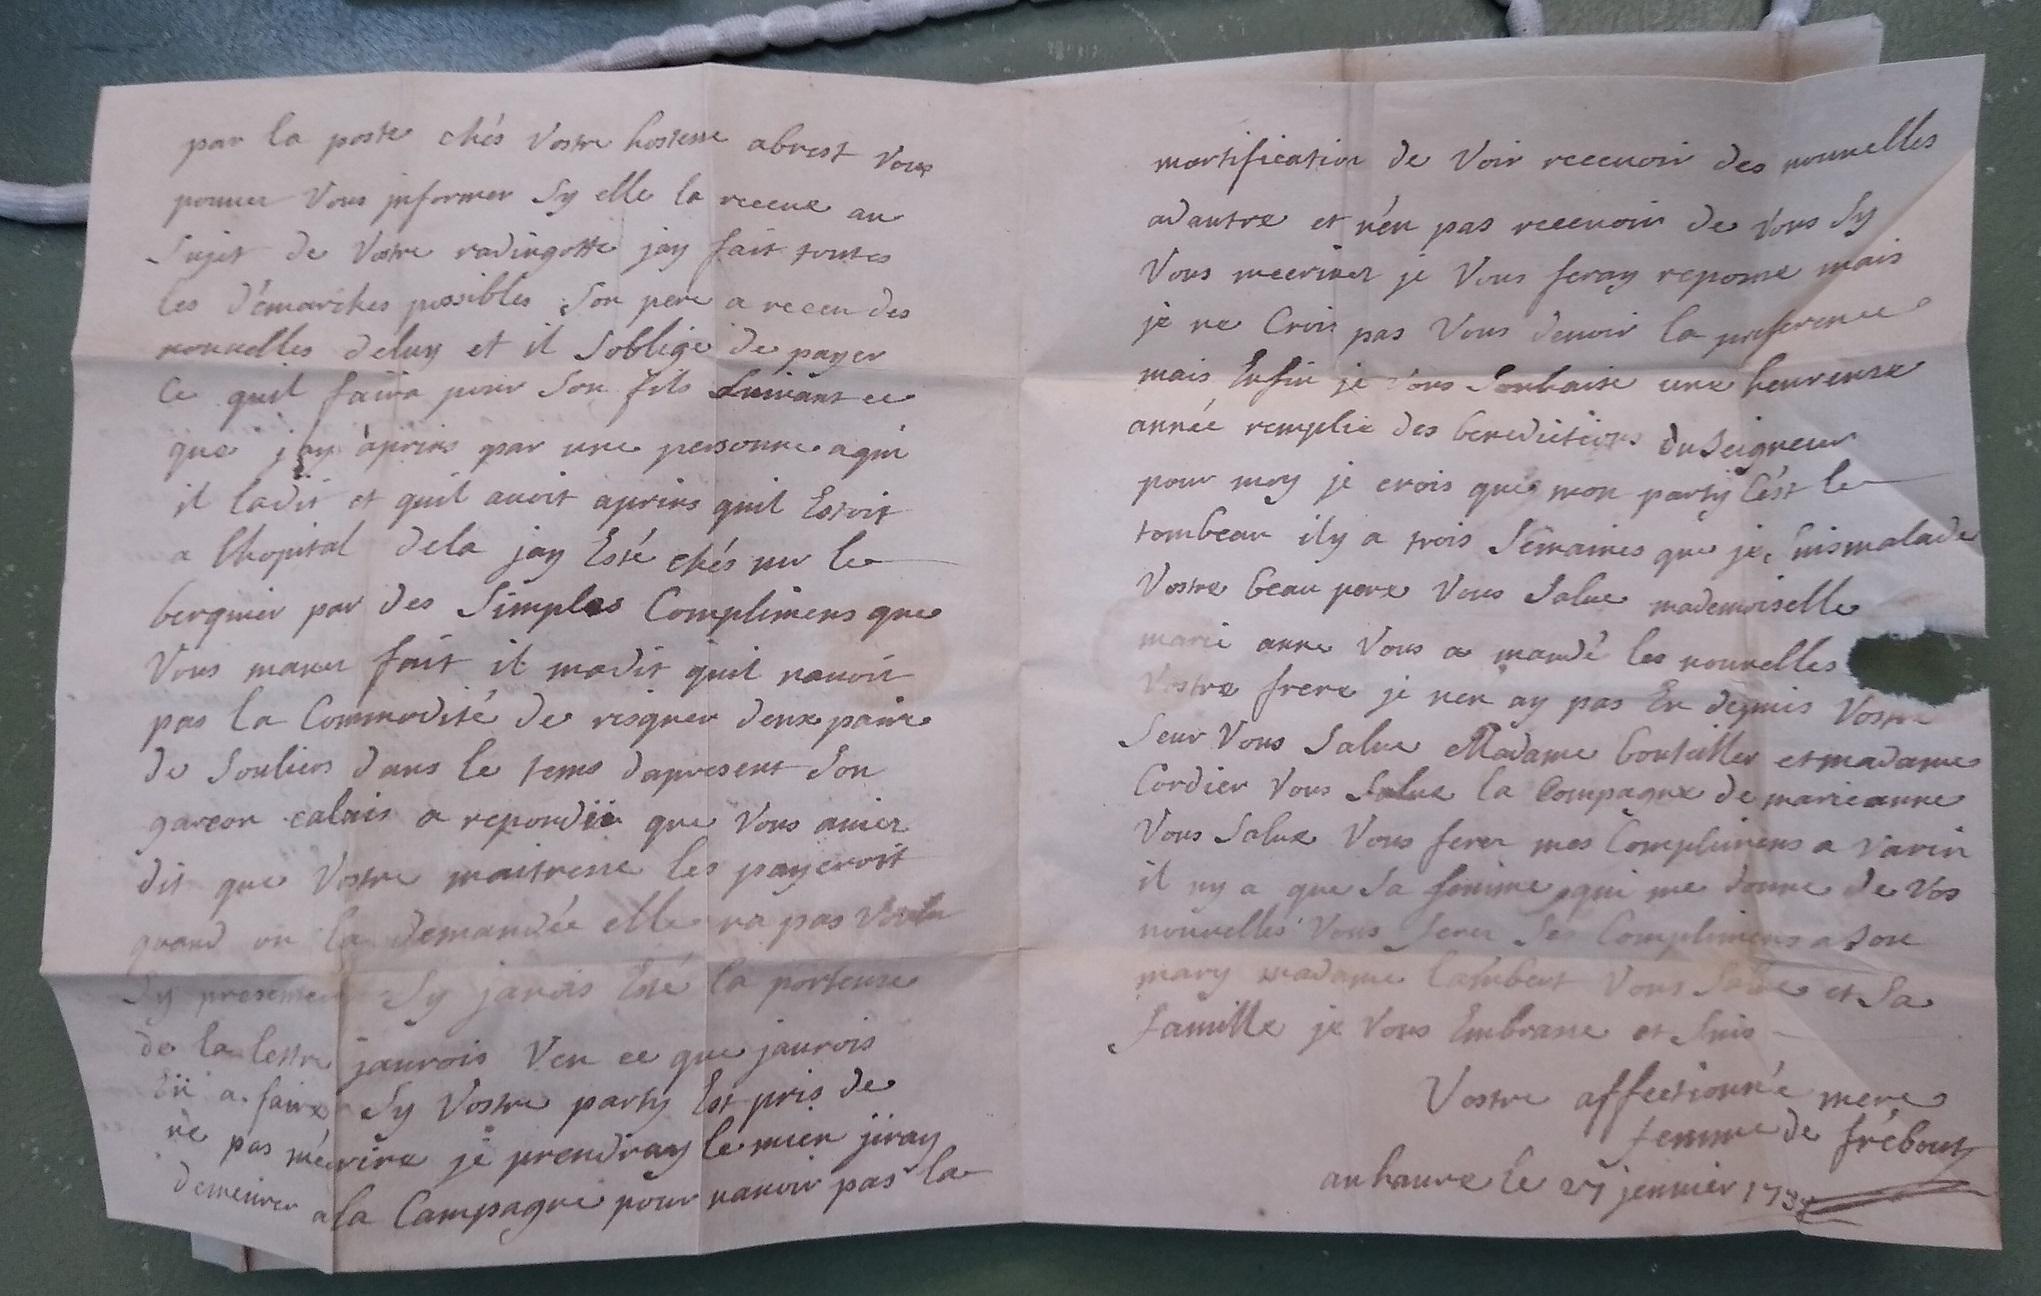 par la poste chés vostre hostesse abrest vous
pouver vous jnformer sy elle la receue au
sujet de vostre radingotte jay fait toutes
les démarches possibles son pere a receu des
nouvelles deluy et il soblige de payer
ce quil faira pour son fils suivant ce
que jay aprins par une personne aqui
il ladit et quil avoit aprins quil Estoit
a lhopital dela jay Esté chés mr le
berquier par des simples Complimens que
vous maver fait il madit quil navoit
pas la Commodité de risquer deux paire
de souliers dans le tems dapresent son
garcon calais a repondü que vous avier
dit que vostre maitresse les payeroit
quand on la demandée elle na pas voulu
sy presenter sy javois Esté la porteuse
de la lettre jaurois veu ce que jaurois
Eü a faire sy vostre party Est pris de
ne pas mécrire je prendray le mien jiray
demeurer ala Campagne pour navoir pas la
mortification de voir recevoir des nouvelles
adautre et nen pas recevoir de vous sy
vous mecriver je vous feray reponse mais
je ne Crois pas vous devoir la preference
mais Enfin je vous souhaite une heureuse
année remplie des benedictions du seigneur
pour moy je crois que mon party Cést le
tombeau ily a trois semaines que je suis malade
vostre beau pere vous salue mademoiselle
marie anne vous a mandé les nouvelles
vostre frere je nen ay pas Eu depuis vostre
seur vous salue Madame bouteiller et madame
Cordier vous salue la Compagne de marie anne
vous salue vous ferer mes Complimens a varin
il ny a que sa femme qui me donne de vos
nouvelles vous ferer ses Complimens a son
mary madame lambert vous salue et sa
famille je vous Embrasse et suis
vostre affectionnée mere
femme de frébourg
au havre le 27 jenvier 173